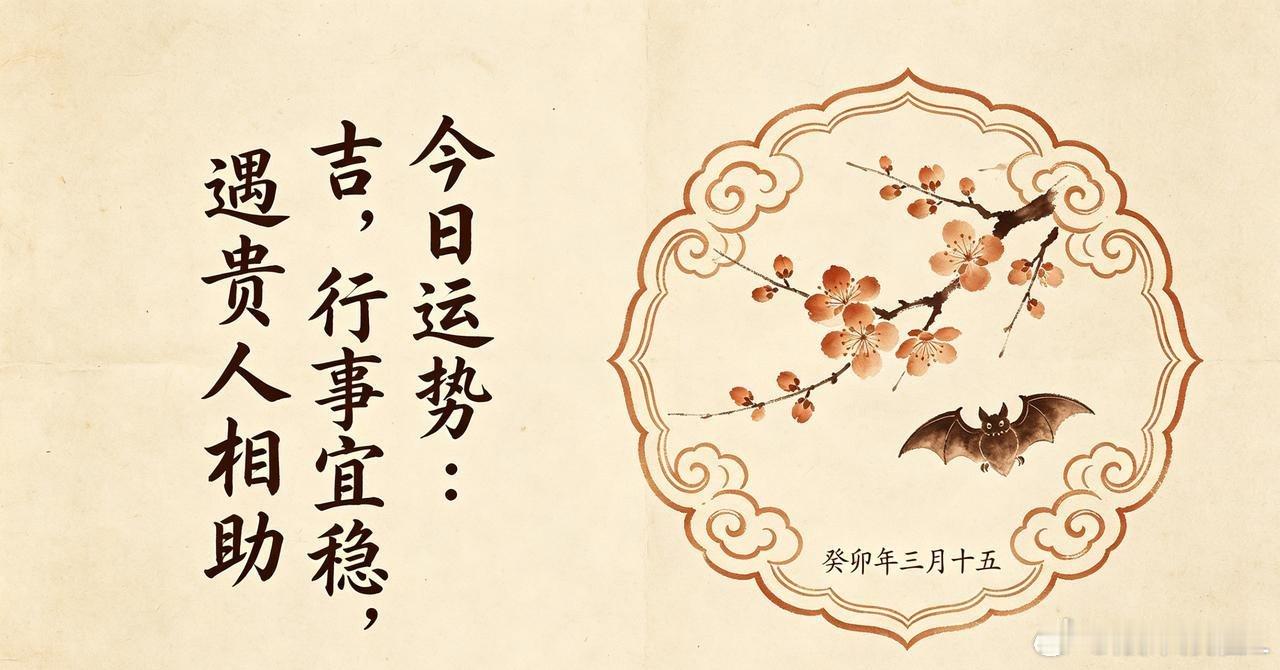 今日运势：
吉，行事宜稳，
遇贵人相助
癸卯年三月十五